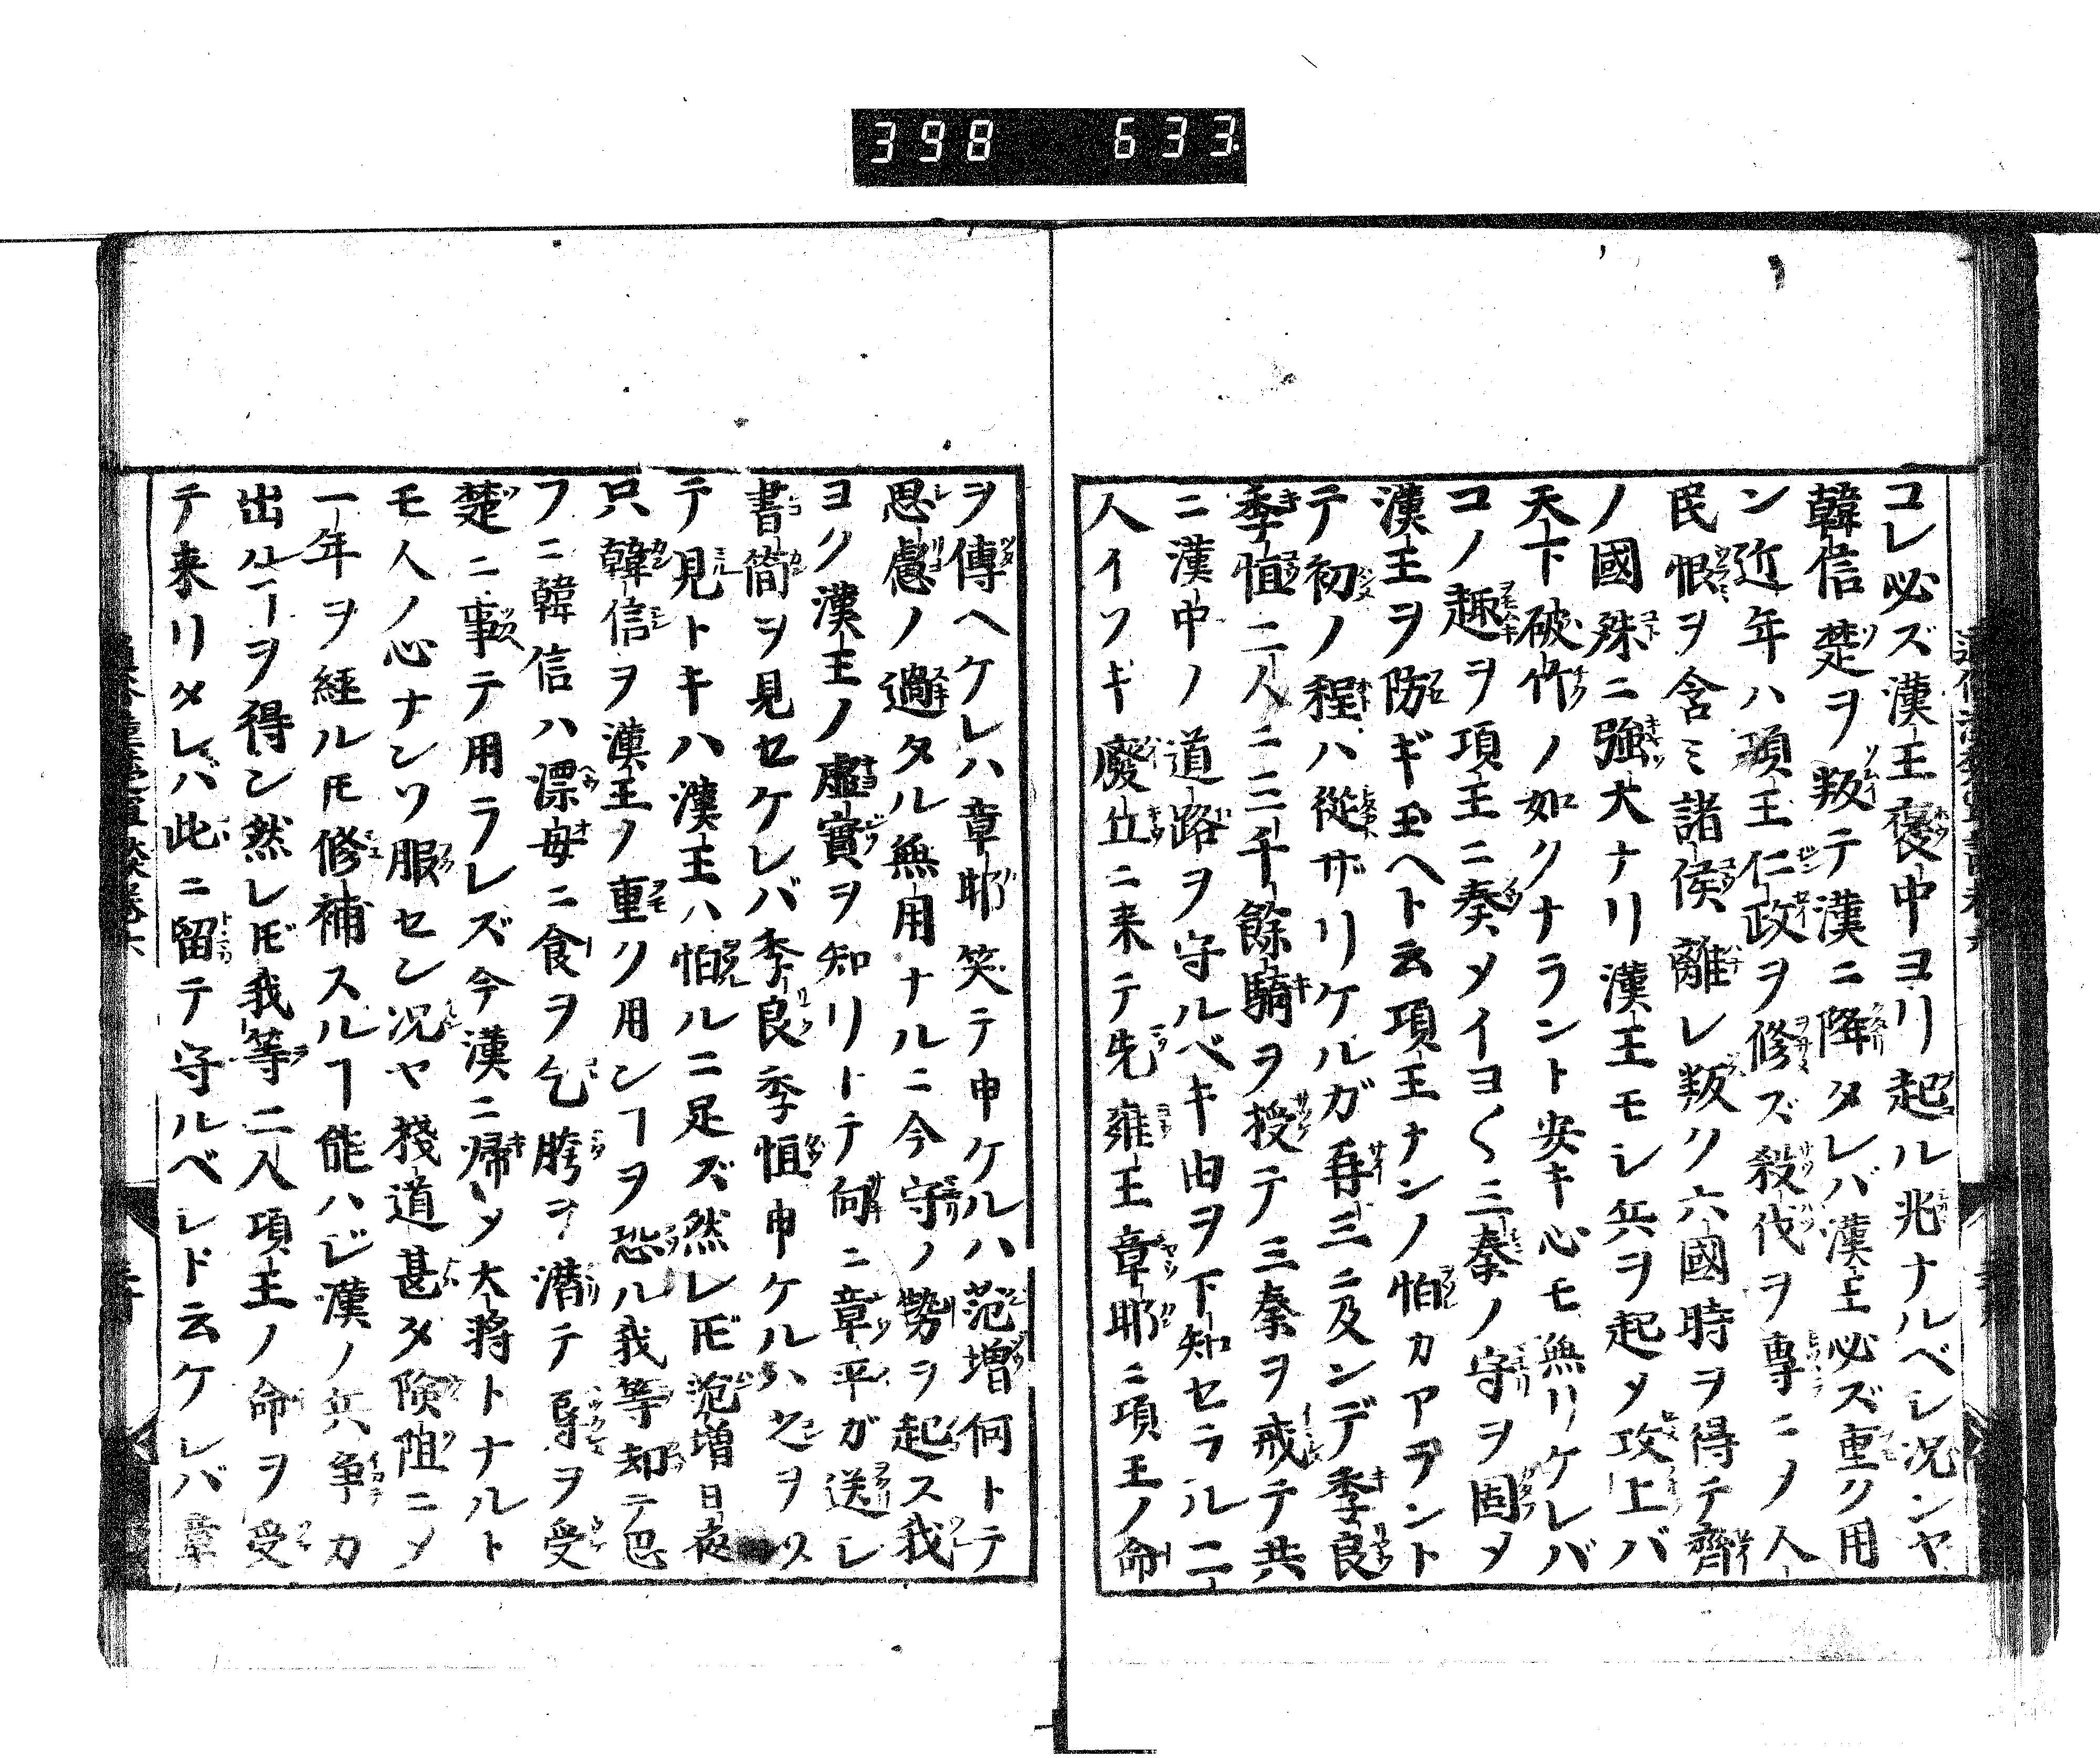 398 633
コレ必ズ漢王褒中ヨリ起ル兆ナルベレ况ンヤ
韓信楚ヲ叛テ漢ニ降タレバ漢王必ズ重ク用
ン近年ハ項王仁政ヲ修ズ殺伐ヲ專ニノ人
民恨ヲ含ミ諸侯離レ叛ク六國時ヲ得テ齊
ノ國殊ニ強大ナリ漢王モレ兵ヲ起メ攻上バ
天下破竹ノ如クナラント安キ心モ無リケレバ
コノ趣ヲ項王ニ奏メイヨ〱三秦ノ守ヲ固メ
漢王ヲ防ギ玉ヘト云項王ナンノ怕カアラント
テ初ノ程ハ從ザリケルガ再三ニ及ンデ季良
季恒二人ニ三千餘騎ヲ授テ三秦ヲ戒テ共
ニ漢中ノ道路ヲ守ルベキ由ヲ下知セラル二
人イソギ廢丘ニ来テ先雍王章耶ニ項王ノ命
ヲ傳ヘケレハ章耶笑テ申ケルハ范増何トテ
思慮ノ過タル無用ナルニ今守ノ勢ヲ起ス我
ヨク漢王ノ虚實ヲ知リトテ何ニ章平ガ送レ
書簡ヲ見セケレバ季良季恒申ケルハ之ヲ以
テ見トキハ漢王ハ怕ルニ足ズ然レ𪜈范増日夜
只韓信ヲ漢王ノ重ク用ンヿヲ恐ル我等却テ思
フニ韓信ハ漂母ニ食ヲ乞胯ヲ潜テ辱ヲ受
楚ニ事テ用ラレズ今漢ニ帰メ大將トナルト
モ人ノ心ナンソ服セン况ヤ棧道甚タ険阻ニメ
一年ヲ經ル𪜈修補スルヿ能ハジ漢ノ兵争カ
出ルヿヲ得ン然レ𪜈我等二人項王ノ命ヲ受
テ来リタレバ此ニ留テ守ルベレト云ケレバ章